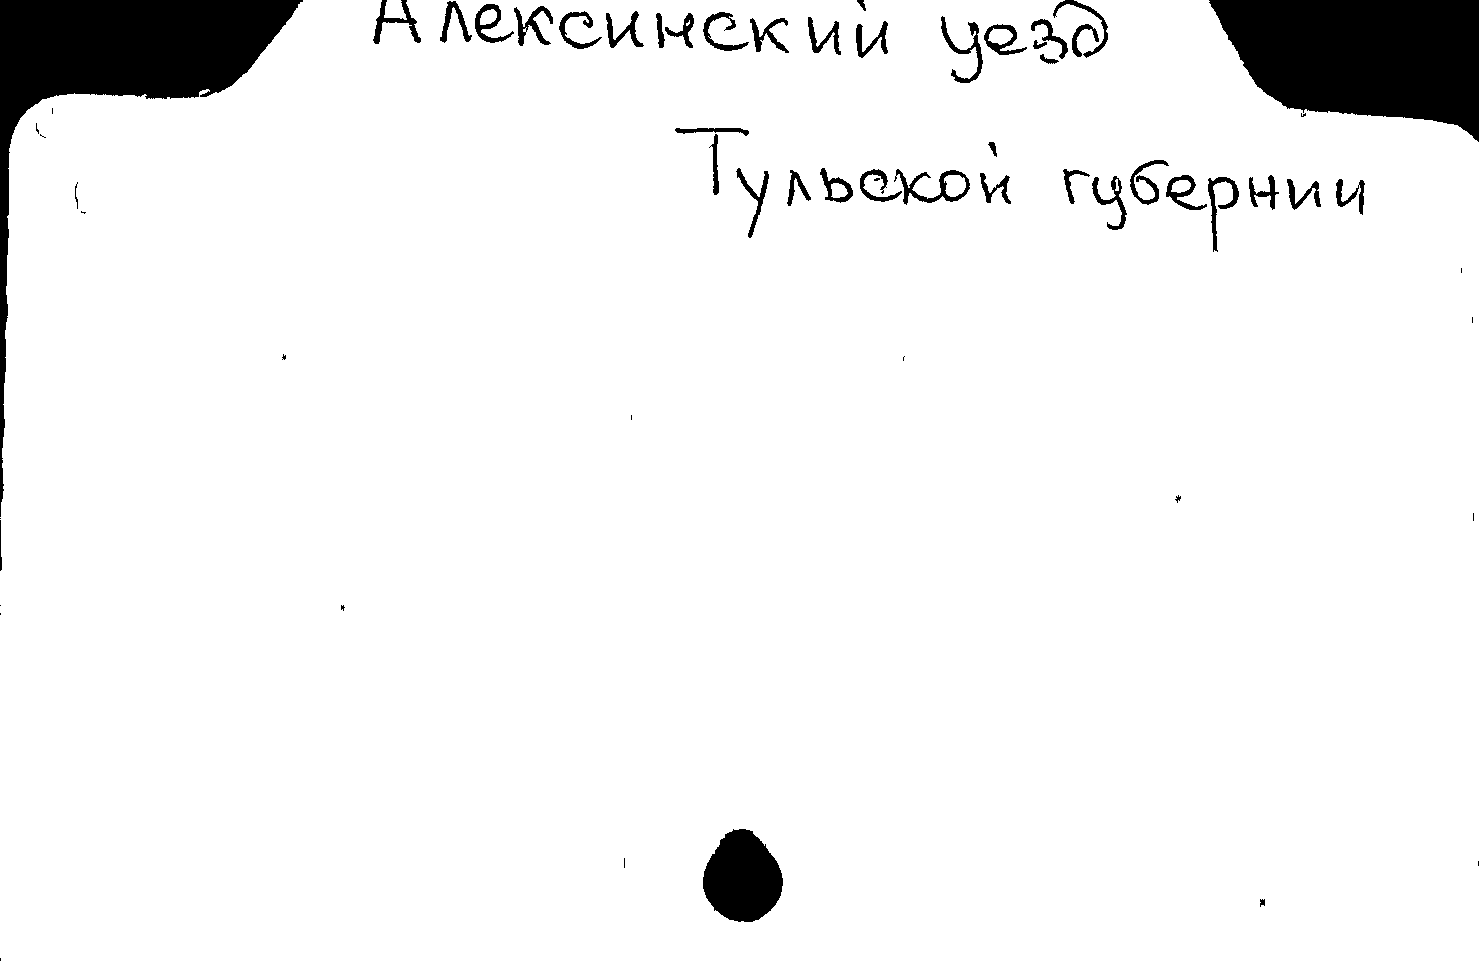 Алексинский уезд
Тульской губернии